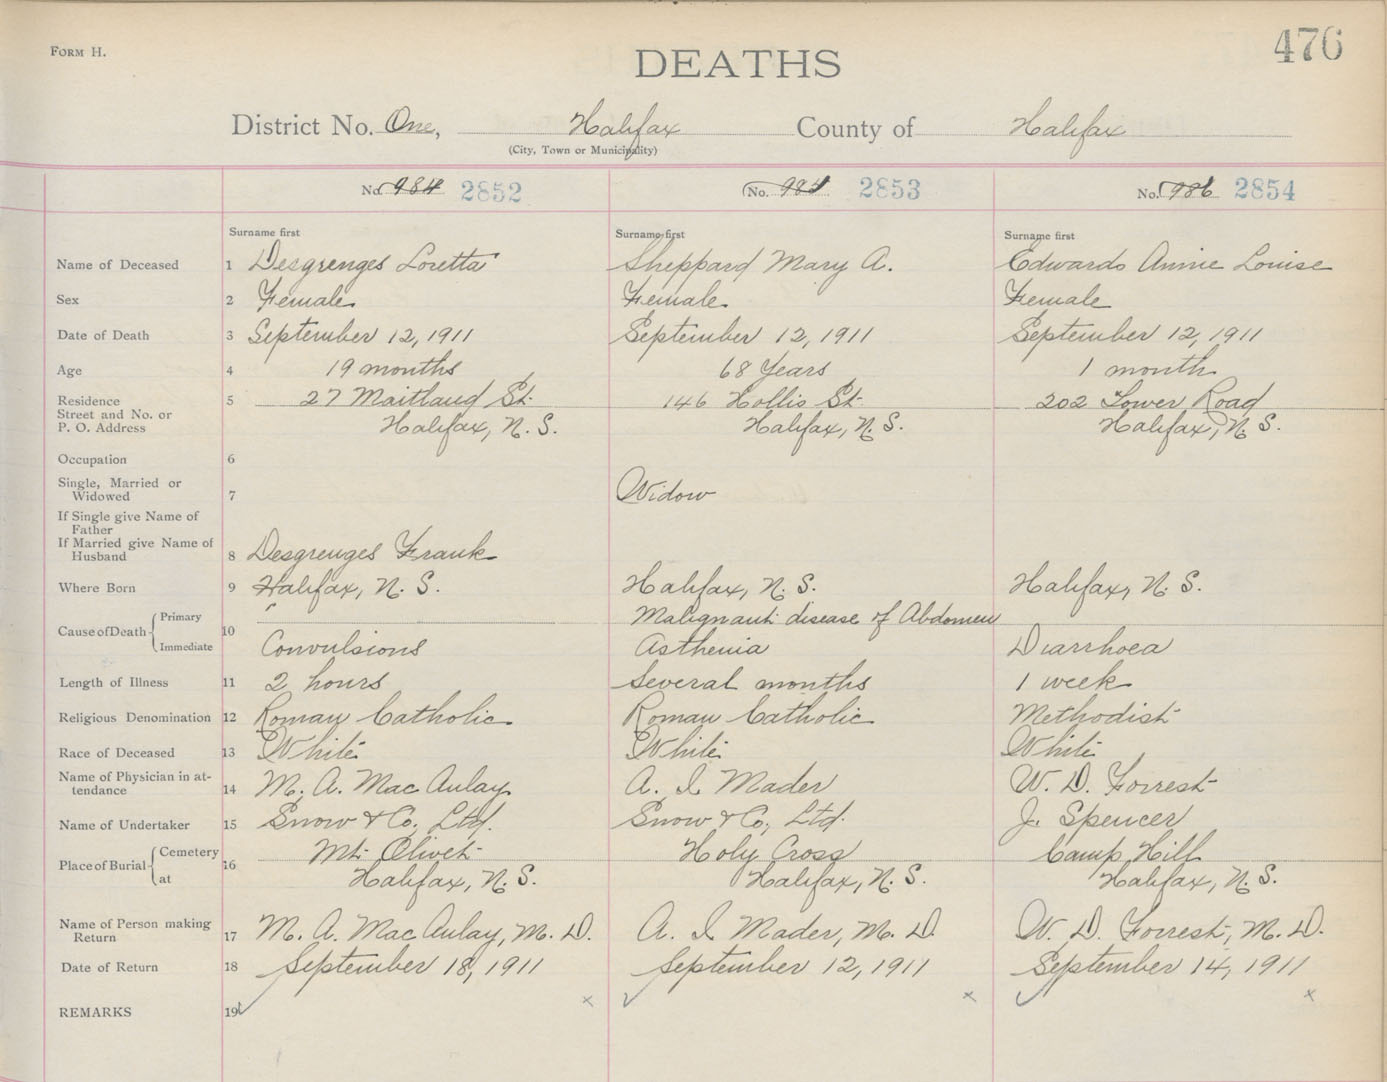 FORM H.
476
DEATHS
District No. One, Halifax County of Halifax
(City, Town or Municipality)
No. 984 2852 No. 2853 No. 986 2854
Surname first Surname first Surname first
Name of Deceased 1 Desgrenges Loretta Sheppard Mary A. Edwards Annie Louise
Sex 2 Female Female Female
Date of Death 3 September 12, 1911 September 12, 1911 September 12, 1911
Age 4 19 months 68 Years 1 month
Residence 5 27 Maitland St. 146 Hollis St. 202 Lower Road
Street and No. or
P. O. Address Halifax, N. S. Halifax, N. S. Halifax, N. S.
Occupation 6
Single, Married or
Widowed 7 Widow
If Single give Name of
Father
If Married give Name of
Husband 8 Desgrenges Frank
Where Born 9 Halifax, N. S. Halifax, N. S. Halifax, N. S.
Cause of Death Primary 10 Malignant disease of Abdomen
Immediate Convulsions Asthenia Diarrhoea
Length of Illness 11 2 hours Several months 1 week
Religious Denomination 12 Roman Catholic Roman Catholic Methodist
Race of Deceased 13 White White White
Name of Physician in at-
tendance 14 M. A. Mac Aulay A. I Mader W. D. Forrest
Name of Undertaker 15 Snow & Co, Ltd. Snow & Co, Ltd. J. Spencer
Place of Burial Cemetery 16 Mt. Olivet Holy Cross Camp Hill
at Halifax, N. S. Halifax, N. S. Halifax, N. S.
Name of Person making
Return 17 M. A. Mac Aulay, M. D. A. I Mader, M. D. W. D. Forrest, M. D.
Date of Return 18 September 18, 1911 September 12, 1911 September 14, 1911
REMARKS 19